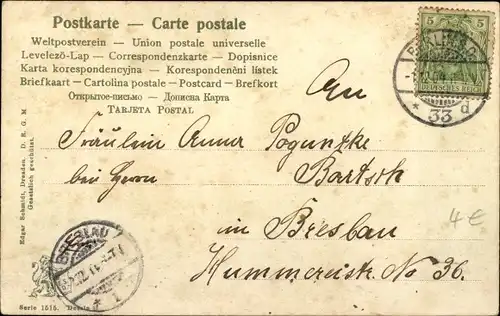 Postkarte — Carte postale
Weltpostverein — Union postale universelle
Levelező-Lap — Correspondenzkarte — Dopisnice
Karta korespondencyjna — Korespondenční lístek
Briefkaart — Cartolina postale — Postcard — Brefkort
Открытое-письмо — Дописна Карта
TARJETA POSTAL
5 5
DEUTSCHES REICH
* 33 d
An
Fräulein Anna Poguntke
bei Herrn Bartsch
in Breslau
Hummereistr. No 36.
4€
BRESLAU
* 1
Edgar Schmidt, Dresden. D. R. G. M
Gesetzlich geschützt.
Serie 1515.